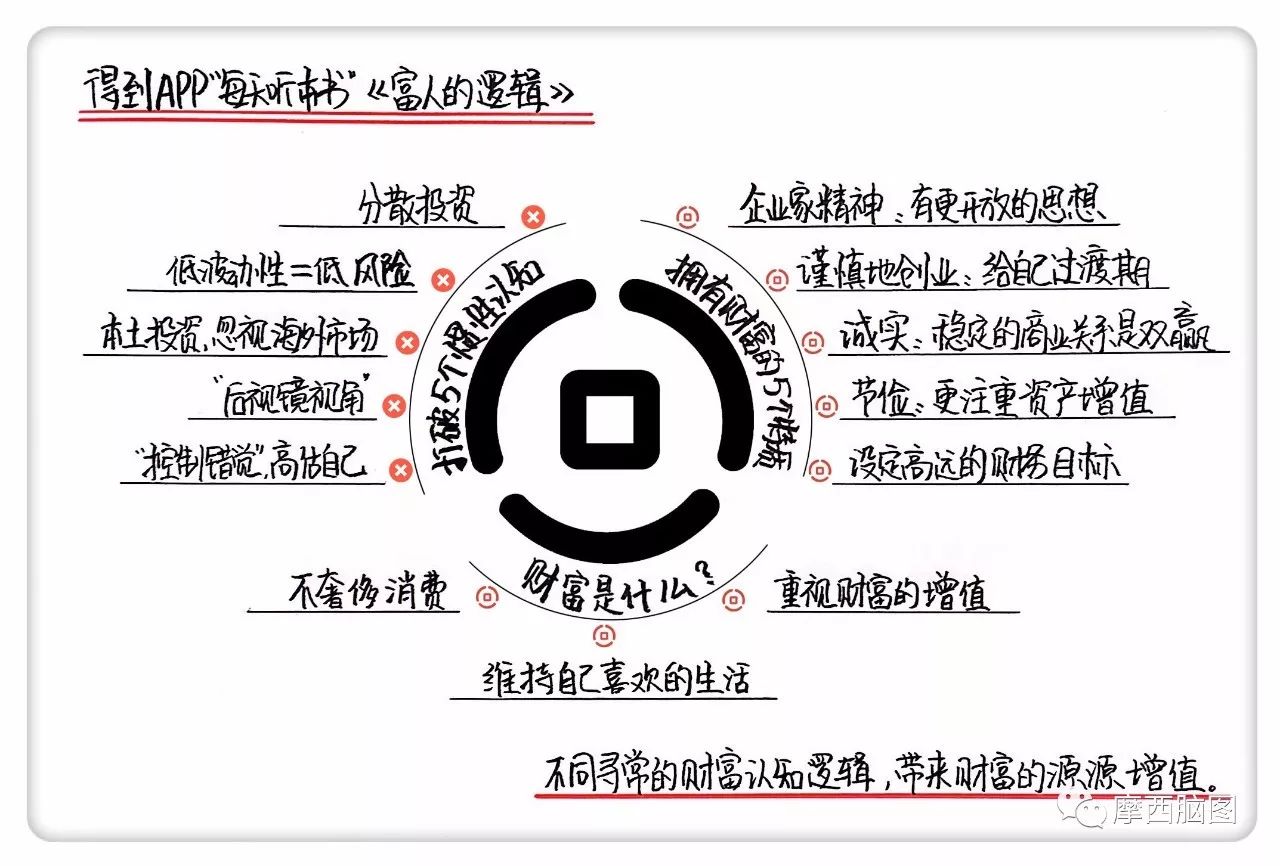 得到APP“每天听本书”《富人的逻辑》
打破5个惯性认知
分散投资
低波动性=低风险
本土投资,忽视海外市场
“后视镜视角”
“控制错觉”,高估自己
拥有财富的5个特质
企业家精神:有更开放的思想
谨慎地创业:给自己过渡期
诚实:稳定的商业关系是双赢
节俭:更注重资产增值
设定高远的财务目标
财富是什么?
不奢侈消费
维持自己喜欢的生活
重视财富的增值
不同寻常的财富认知逻辑,带来财富的源源增值。
摩西脑图